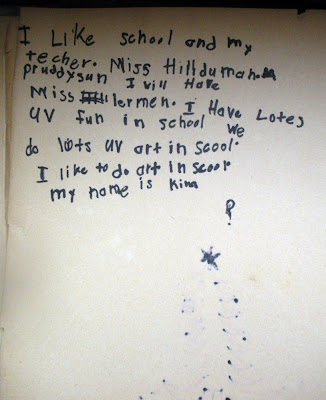 I Like school and my
techer. Miss Hilldumah.
pruddysun I will Have
Miss lermen. I Have Lotes
UV fun in school we
do lots UV art in scool.
I like to do art in scool.
my name is Kina
?